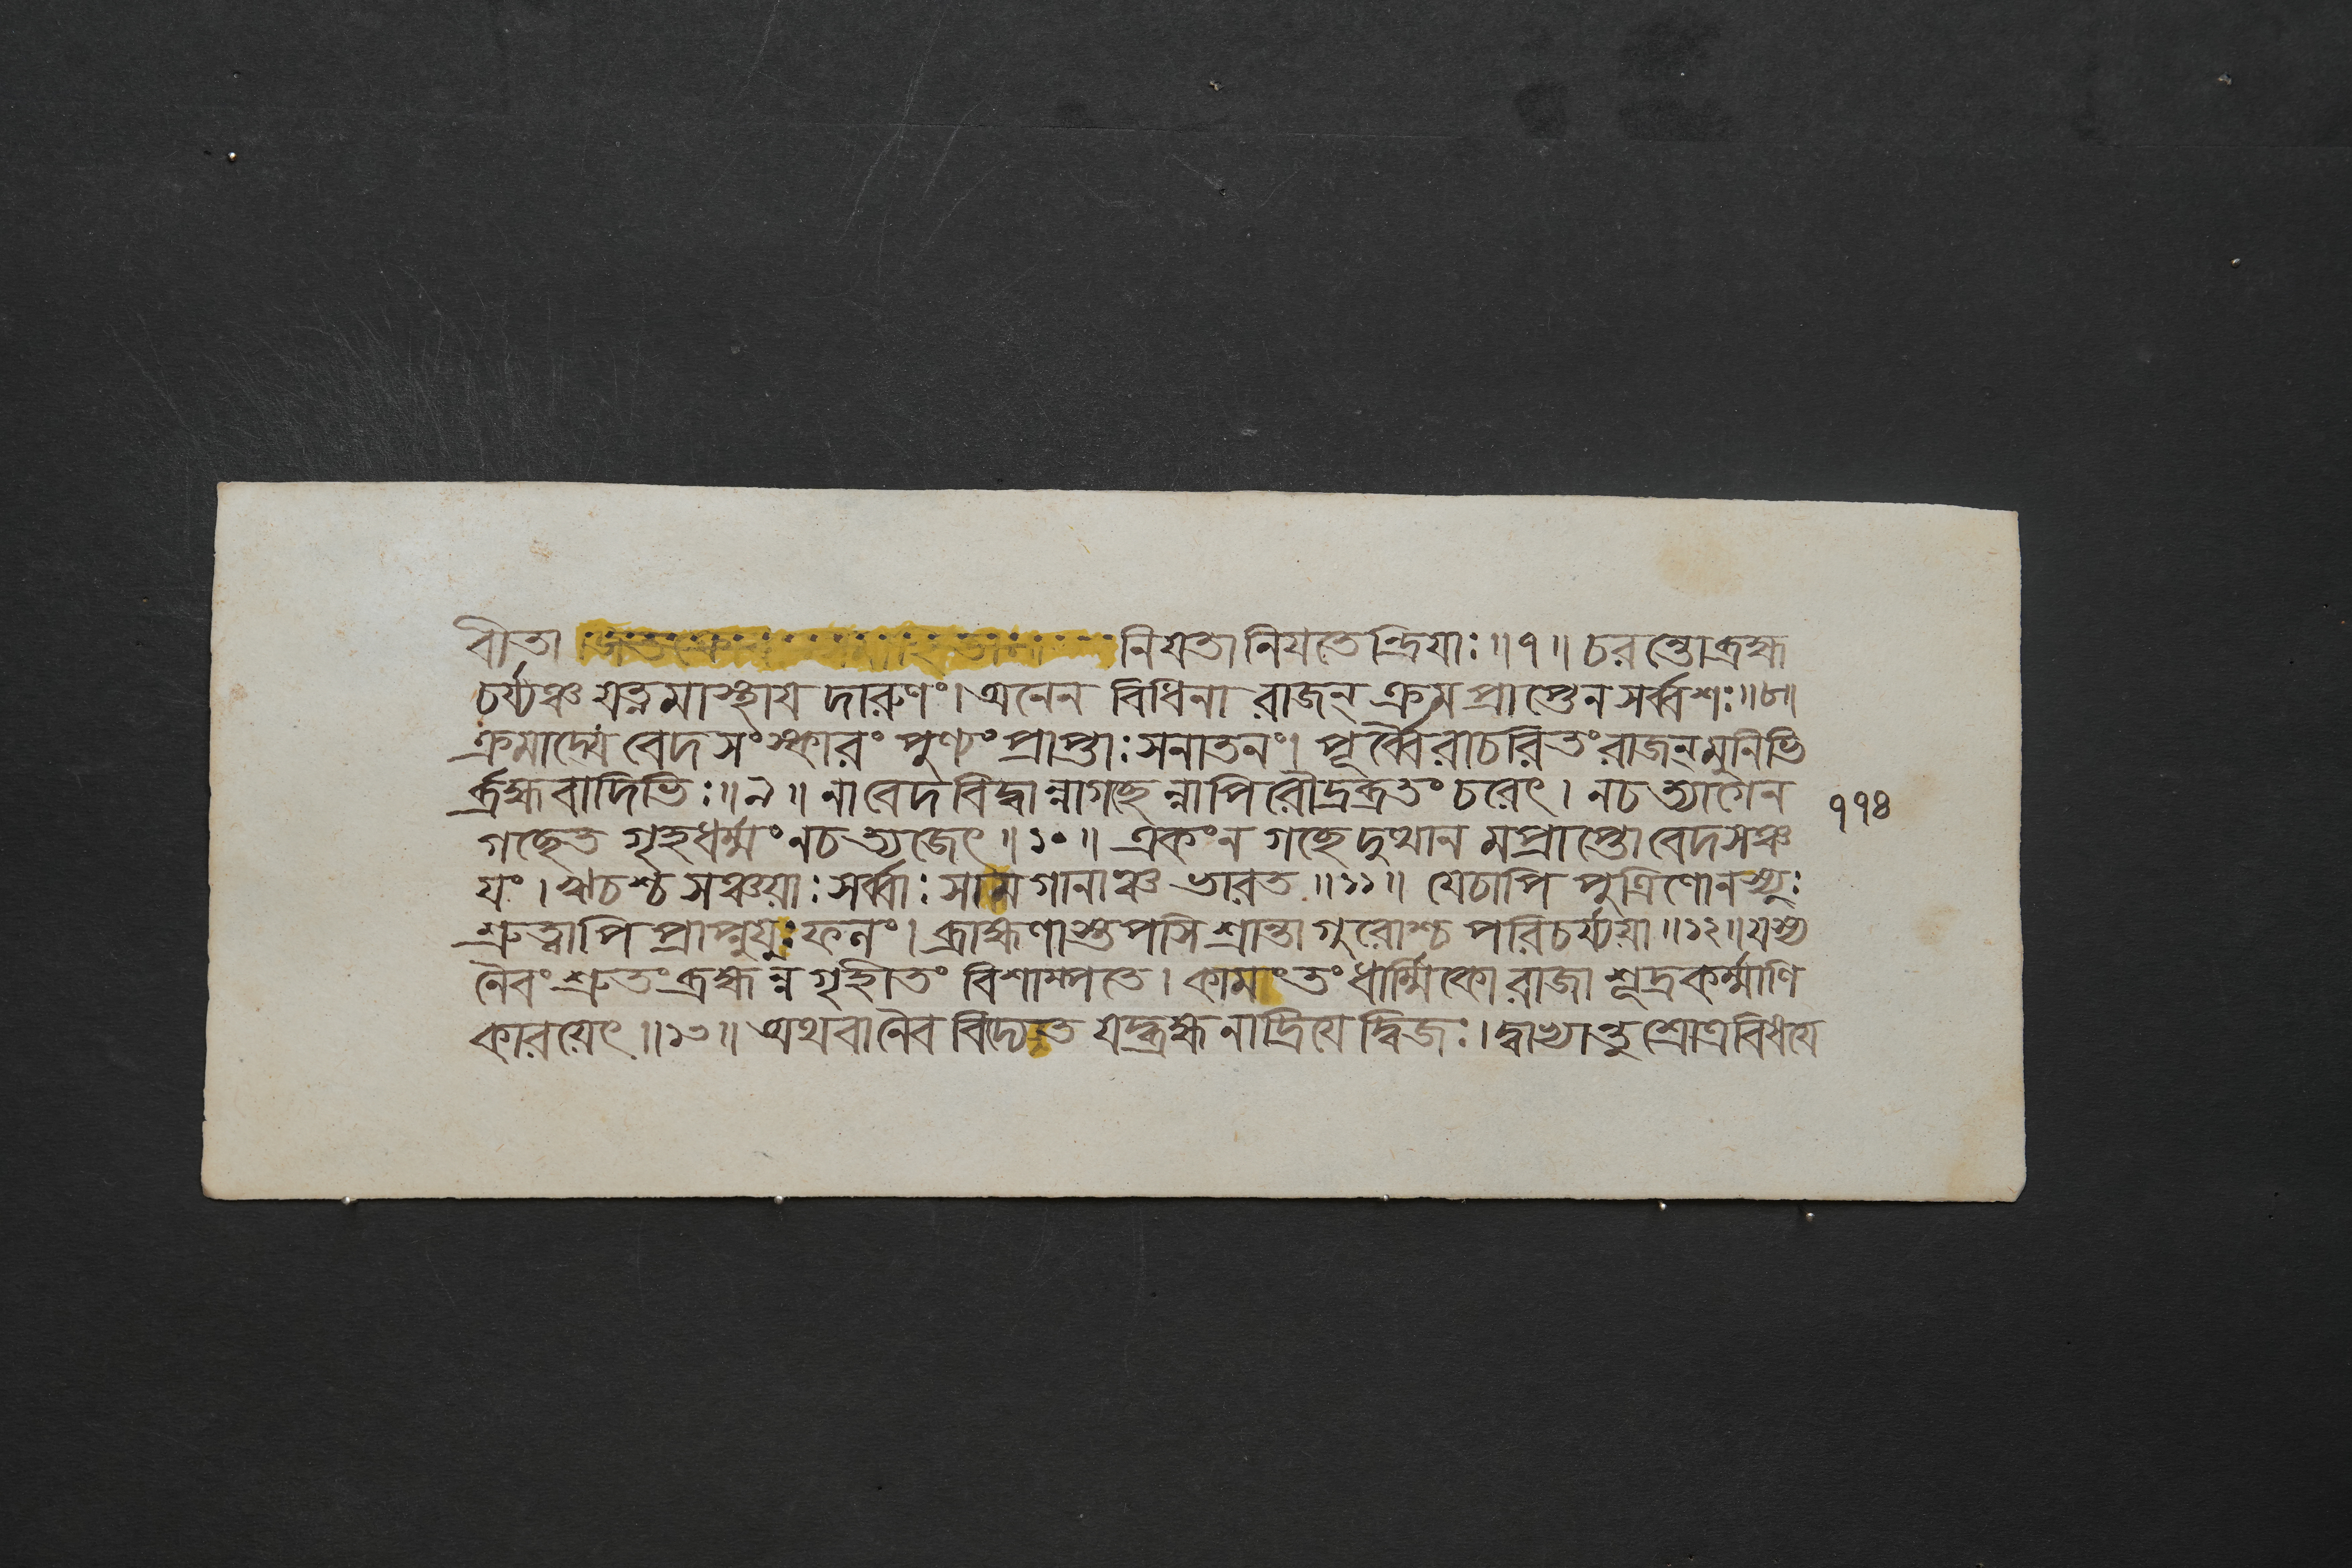 বীতা নিয়তা নিয়তেন্দ্রিয়াঃ॥৭॥ চরন্তো ব্রহ্ম
চর্য্যঞ্চ যত্নমাস্থায় দারুণং। অনেন বিধিনা রাজন্ ক্রমপ্রাপ্তেন সর্ব্বশঃ॥৮॥
ক্রমাদ্যে বেদসংস্কারং পুণ্যং প্রাপ্তাঃ সনাতনং। পূর্ব্বৈরাচরিতং রাজন্ মুনিভি
র্ব্রহ্মবাদিভিঃ॥৯॥ নাবেদবিদ্বান্নাগচ্ছেন্নাপি রৌদ্রব্রতং চরেৎ। নচ ত্যাগেন
গচ্ছেত গৃহধর্ম্মং নচ ত্যজেৎ॥১০॥ একং ন গচ্ছেদুত্থান মপ্রাপ্তো বেদসঞ্চ
যং। ঋচশ্চ সঞ্চয়াঃ সর্ব্বাঃ সামগানাঞ্চ ভারত॥১১॥ যেচাপি পুত্রিণো ন স্যুঃ
শ্রুত্বাপি প্রাপ্নুয়ুঃ ফলং। ব্রাহ্মণাস্তপসি শ্রান্তা গুরোশ্চ পরিচর্য্যয়া॥১২॥ যস্য
নৈবং শ্রুতং ব্রহ্ম ন্ন গৃহীতং বিশাম্পতে। কামং তং ধার্ম্মিকো রাজা শূদ্রকর্ম্মাণি
কারয়েৎ॥১৩॥ অথবা নৈব বিদ্যেত যদ্ব্রহ্ম নাদ্রিয়ে দ্বিজঃ। দ্বাখ্যান্তু শ্রোত্রবিধয়ে
১১৪